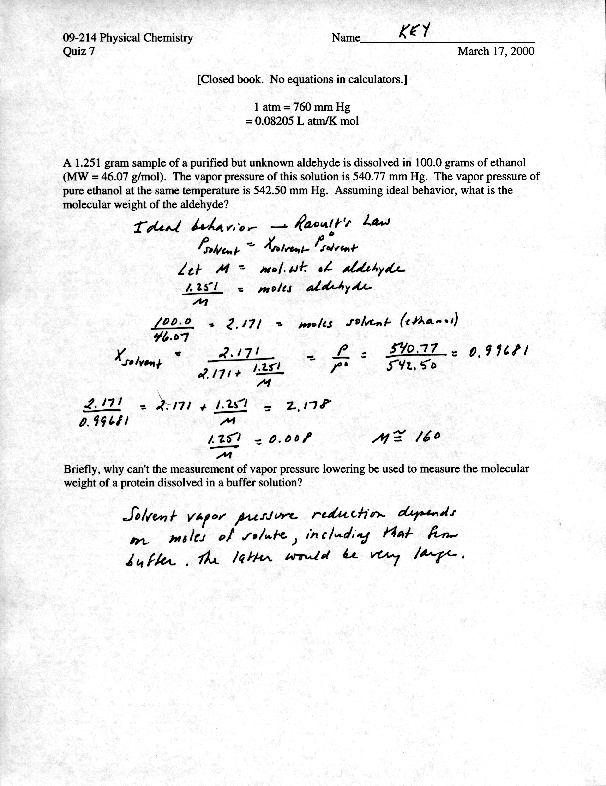 09-214 Physical Chemistry Name KEY
Quiz 7 March 17, 2000
[Closed book. No equations in calculators.]
1 atm = 760 mm Hg
= 0.08205 L atm/K mol
A 1.251 gram sample of a purified but unknown aldehyde is dissolved in 100.0 grams of ethanol
(MW = 46.07 g/mol). The vapor pressure of this solution is 540.77 mm Hg. The vapor pressure of
pure ethanol at the same temperature is 542.50 mm Hg. Assuming ideal behavior, what is the
molecular weight of the aldehyde?
Ideal behavior — Raoult's Law
P solvent = X solvent P° solvent
Let M = mol. wt. of aldehyde
1.251 / M = moles aldehyde
100.0 / 46.07 = 2.171 = moles solvent (ethanol)
X solvent = 2.171 / (2.171 + 1.251 / M) = P / P° = 540.77 / 542.50 = 0.99681
2.171 / 0.99681 = 2.171 + 1.251 / M = 2.178
1.251 / M = 0.008 M ≅ 160
Briefly, why can't the measurement of vapor pressure lowering be used to measure the molecular
weight of a protein dissolved in a buffer solution?
Solvent vapor pressure reduction depends
on moles of solute, including that from
buffer. The latter would be very large.